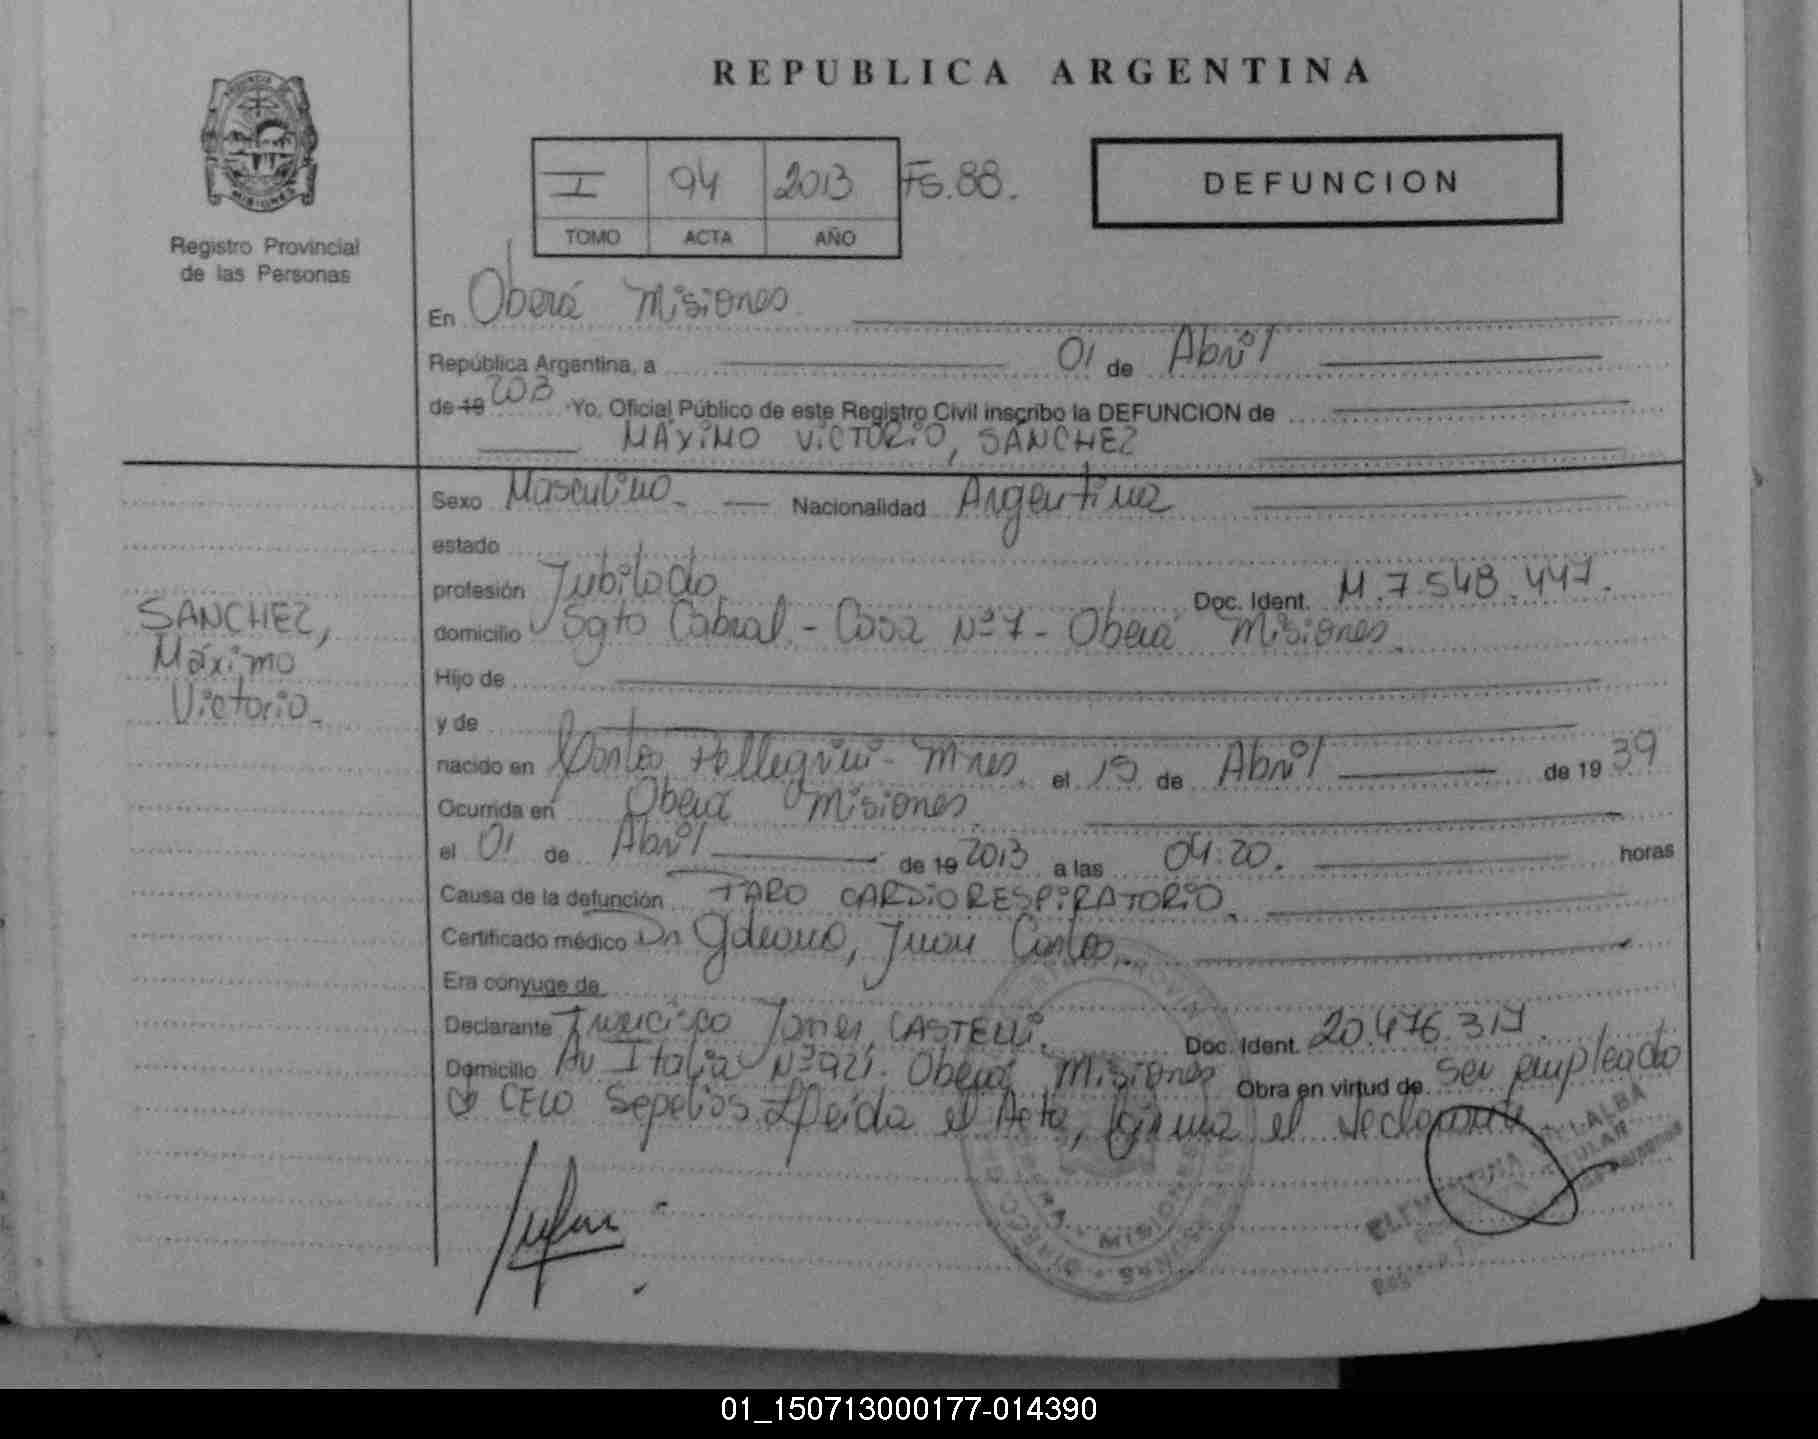 REPUBLICA ARGENTINA
PROVINCIA
MISIONES
Registro Provincial
de las Personas
I 94 2013 Fs. 88.
TOMO ACTA AÑO
DEFUNCION
En Oberá Misiones
República Argentina, a 01 de Abril
de 19 2013 Yo, Oficial Público de este Registro Civil inscribo la DEFUNCION de
MÁXIMO VICTORIO, SÁNCHEZ
Sexo Masculino Nacionalidad Argentina
estado
profesión Jubilado Doc. Ident. M. 7.548.447.
domicilio Sgto Cabral - Casa Nº 7 - Oberá Misiones
SANCHEZ,
Máximo
Victorio
Hijo de
y de
nacido en Carlos Pellegrini - Mnes el 15 de Abril de 19 39
Ocurrida en Oberá Misiones
el 01 de Abril de 19 2013 a las 04:20. horas
Causa de la defunción PARO CARDIORESPIRATORIO
Certificado médico Dr Juan Carlos
Era cónyuge de
Declarante Francisco Javier, CASTELLI. Doc. Ident. 20.476.317
Domicilio Av Italia Nº 921. Oberá Misiones Obra en virtud de ser empleado
CELO Sepelios. Leída el Acta, firma el declarante
MISIONES
VILLALBA
TITULAR
01_150713000177-014390